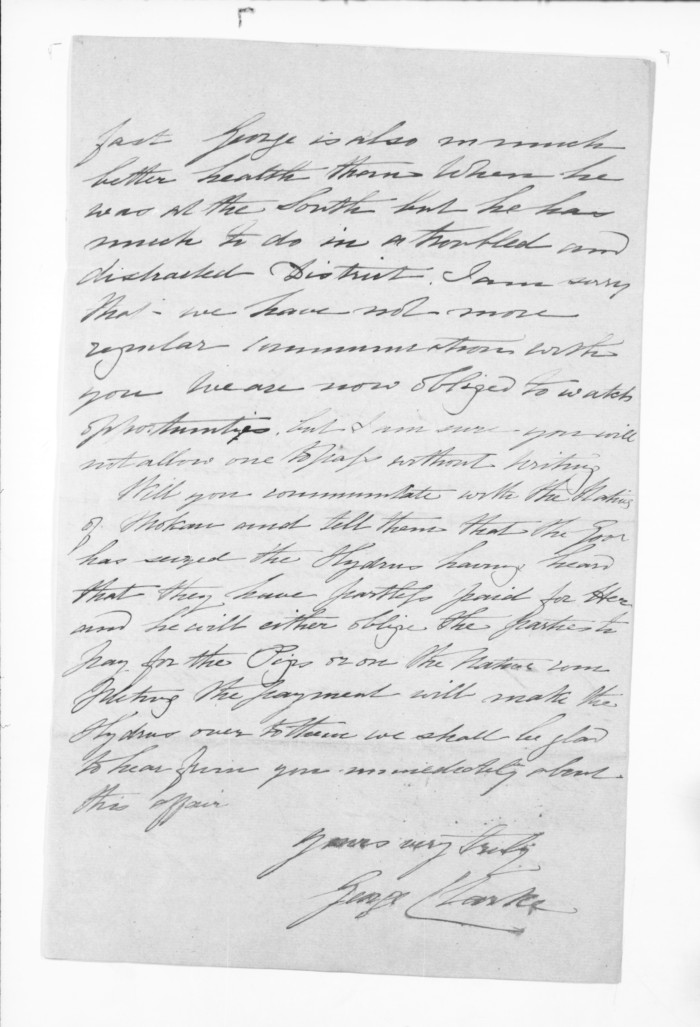 fast George is also in much
better health than when he
was at the South but he has
much to do in a troubled and
distracted District. I am sorry
that - we have not more
regular communication with
you We are now obliged to watch
opportunities, but I am sure you will
not allow one to pass without writing
Will you communicate with the Natives
of Mokau and tell them that the Govr
has seized the Hydrus having heard
that they have partly paid for Her
and he will either oblige the parties to
pay for the Pigs or on the Natives com
pleting the payment will make the
Hydrus over to them we shall be glad
to hear from you immediately about
this affair
yours very truly
George Clarke